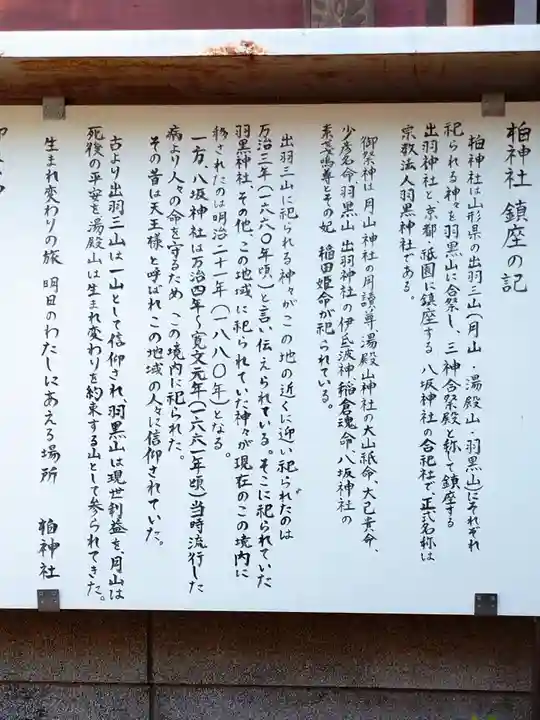 柏神社 鎮座の記
柏神社は山形県の出羽三山(月山・湯殿山・羽黒山)にそれぞれ
祀られる神々を羽黒山に合祭し、三神合祭殿と称して鎮座する
出羽神社と京都・祇園に鎮座する八坂神社の合祀社で、正式名称は
宗教法人羽黒神社である。
御祭神は月山神社の月讀尊、湯殿山神社の大山祇命、大己貴命、
少彦名命羽黒山出羽神社の伊氐波神、稲倉魂命、八坂神社の
素盞嗚尊とその妃 稲田姫命が祀られている。
出羽三山に祀られる神々がこの地の近くに迎い祀られたのは
万治三年(一六六〇年頃)と言い伝えられている。そこに祀られていた
羽黒神社、その他、この地域に祀られていた神々が現在のこの境内に
移されたのは明治二十一年(一八八〇年)となる。
一方、八坂神社は万治四年~寛文元年(一六六一年頃)当時流行した
病より人々の命を守るため、この境内に祀られた。
その昔は天王様と呼ばれこの地域の人々に信仰されていた。
古より出羽三山は一山として信仰され、羽黒山は現世利益を、月山は
死後の平安を湯殿山は生まれ変わりを約束する山として参られてきた。
生まれ変わりの旅 明日のわたしにあえる場所 柏神社